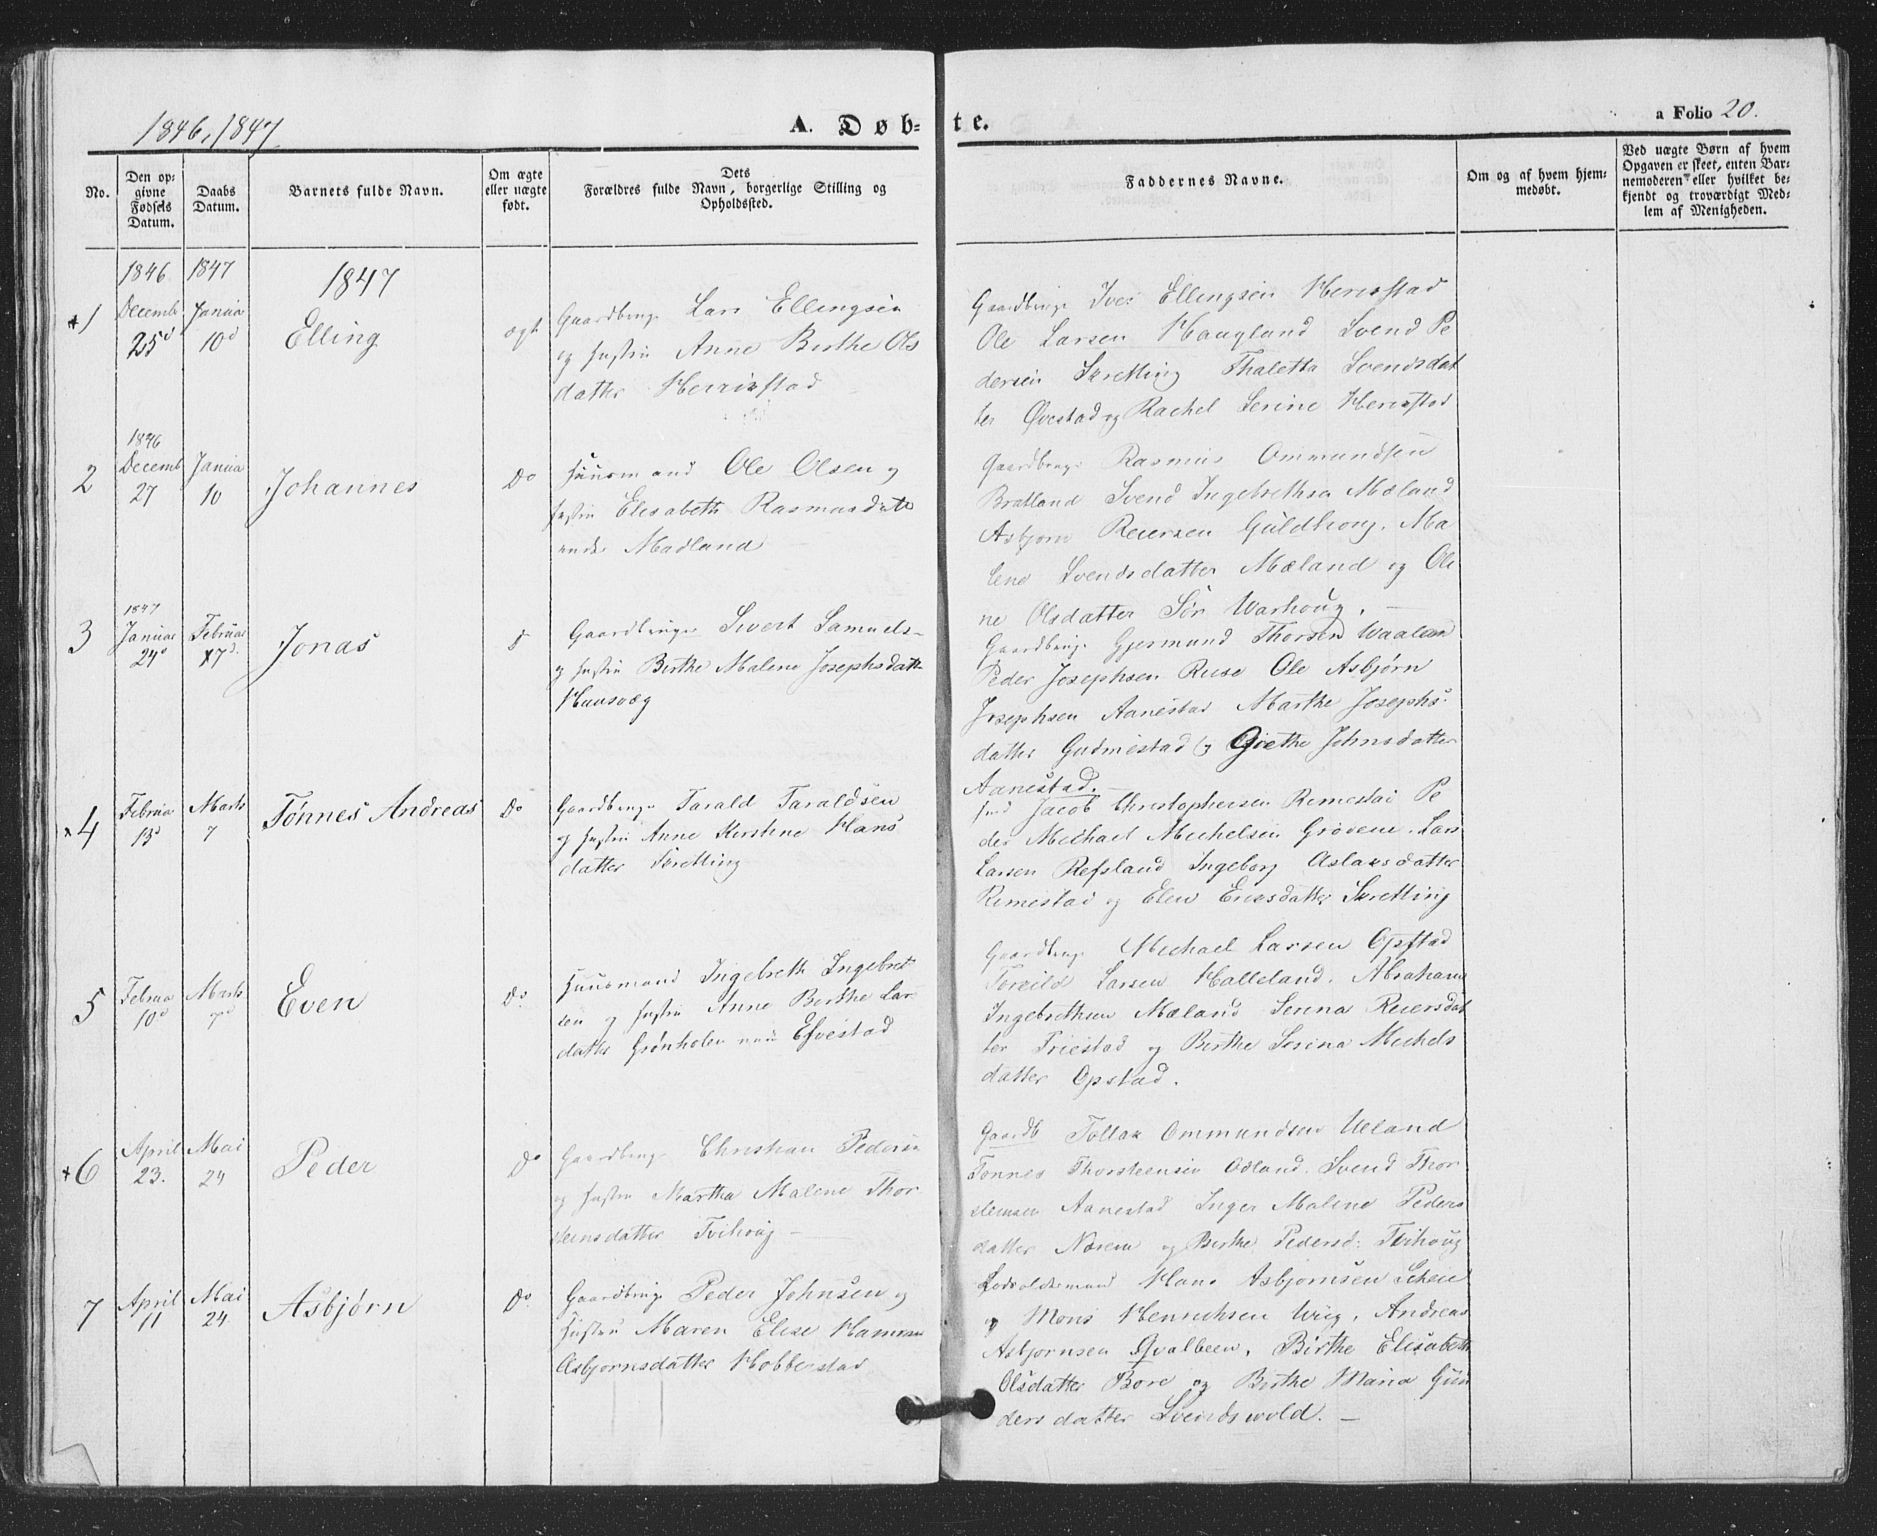 1846, 1847
A. Døb-
te.
a Folio 20.
No.
Den op-
givne
Fødsels
Datum.
Daabs
Datum.
Barnets fulde Navn.
Om ægte
eller uægte
født.
Dets
Forældres fulde Navn, borgerlige Stilling og
Opholdssted.
Faddernes Navne.
Om og af hvem hjem-
medøbt.
Ved uægte Børn af hvem
Opgaven er skeet, enten Bar-
nemoderen eller hvilket be-
kjendt og troværdigt Med-
lem af Menigheden.
1846
1847
1847
1
Decemb
25d
Janua
10d
Elling
ægt
Gaardbruge Lars Ellingsen
og Anne Birthe Ols
datter Herrisstad
Gaardbruge Iver Ellingsen Herisstad
Ole Larsen Haugland Svend Pe
dersen Skretting Thaletta Svendsdat
ter Øvestad og Rachel Serine Herisstad
2
1846
Decemb
27
Janua
10
Johannes
Do
Huusmand Ole Olsen og
Elisabeth Rasmusdatte
Madland
Gaardbruge Rasmus Ommundsen
Bratland Svend Ingebrethsen Mæland
Asbjørn Reiersen Guldhoug. Ma
lene Svendsdatter Mæland og Ole
ne Olsdatter Sör Warhoug.
3
1847
Januar
24d
Februar
7d
Jonas
Gaardbruge Sivert Samuels-
og Birthe Malene Josephsdatte
Gaardbruge Gjermund Thorsen Waaland
Peder Josephsen Ruse Ole Asbjørn
Josephsen Aanestad Marthe Josephs
datter Gudmestad og Grethe Johnsdatter
Aanestad.
4
Februa
13d
Marts
7
Tønnes Andreas
Do
Gaardbruge Tarald Taraldsen
og Anne Kirstine Hans
datter Skretting
Jacob Christophersen Rimestad Pe
der Michael Michelsen Grødene. Lars
Larsen Refsland Ingeborg Aslaksdatter
Rimestad og Elen Ericsdatter Skretting
5
Februa
10d
Marts
7d
Even
Do
Huusmand Ingebreth Ingebret
sen og Anne Birthe Lar
datter Grønholen
Gaardbruge Michael Larsen Opstad
Toreild Larsen Halleland. Abraham
Ingebrethsen Mæland Senna Reiersdat
ter Friestad og Birthe Serina Michels
datter Opstad.
6
April
23.
Mai
24
Peder
Do
Gaardbruge Christian Pedersen
og Martha Malene Thor
steinsdatter Tvihoug
Gaardb Tollak Ommundsen Ueland
Tønnes Thorsteensen Odland. Svend Thor
stensen Aanestad Inger Malene Peders
datter Nærem og Birthe Pedersd: Tvihoug
7
April
11
Mai
24
Asbjørn
Do
Gaardbruge Peder Johnsen og
Maren Elise
Asbjørnsdatter Hobberstad
Hans Asbjørnsen Scheie
og Mons Henrichsen Wiig, Andreas
Asbjørnsen Qvalbeen, Birthe Elisabeth
Olsdatter Bore og Birthe Maria Gun
dersdatter Svendswold.